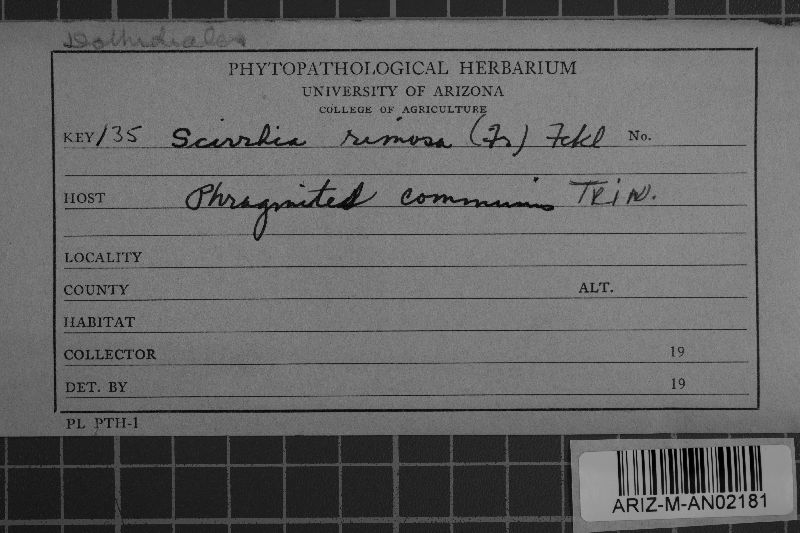 Dothidiales
PHYTOPATHOLOGICAL HERBARIUM
UNIVERSITY OF ARIZONA
COLLEGE OF AGRICULTURE
KEY 135 Scirrhia rimosa (Fr) Fckl No.
HOST Phragmites communis TRIN.
LOCALITY
COUNTY ALT.
HABITAT
COLLECTOR 19
DET. BY 19
PL PTH-1
ARIZ-M-AN02181